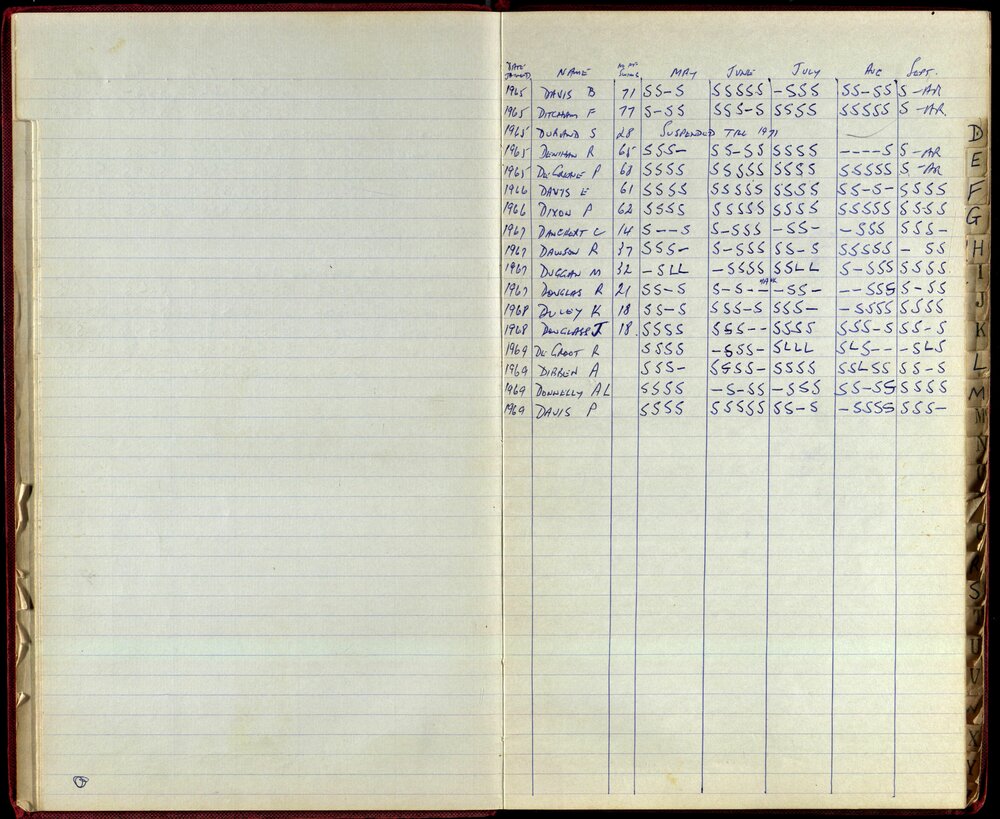 DATE JOINED NAME MAY JUNE JULY AUG SEPT.
1965 DAVIS B 71 SS-S SSSSS -SSS SS-SS S-AR
1965 DITCHAM F 77 S-SS SSS-S SSSS SSSSS S-AR
1965 DURAND S 28 SUSPENDED TILL 1971
1965 DENMAN R 65 SSS- SS-SS SSSS ----S S-AR
1965 P 68 SSSS SSSSS SSSS SSSSS S-AR
1966 DAVIS E 61 SSSS SSSSS SSSS SS-S- SSSS
1966 DIXON P 62 SSSS SSSSS SSSS SSSSS SSSS
1967 14 S--S S-SSS -SS- -SSS SSS-
1967 DAWSON R 37 SSS- S-SSS SS-S SSSSS - SS
1967 DUGGAN M 32 -SLL -SSSS SSLL S-SSS SSSS
1967 DOUGLAS R 21 SS-S S-S-- -SS- --SSS S-SS
1968 DULEY K 18 SS-S SSS-S SSS- -SSSS SSSS
1968 DOUGLASS J 18. SSSS SSS-- SSSS SSS-S SS-S
1969 DE GROOT R SSSS -SSS- SLLL SLS-- -SLS
1969 DIBBEN A SSS- SSSS- SSSS SSLSS SS-S
1969 DONNELLY AL SSSS -S-SS -SSS SS-SS SSSS
1969 DAVIS P SSSS SSSSS SS-S -SSSS SSS-
D
E
F
G
H
I
J
K
L
M
N
S
T
U
V
X
Y